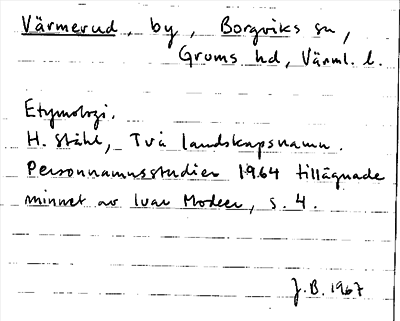 Värmerud, by, Borgviks sn,
Grums hd, Värml. l.
Etymologi.
H. Ståhl, Två landskapsnamn.
Personnamnsstudier 1964 tillägnade
minnet av Ivar Modéer, s. 4.
J.B. 1967